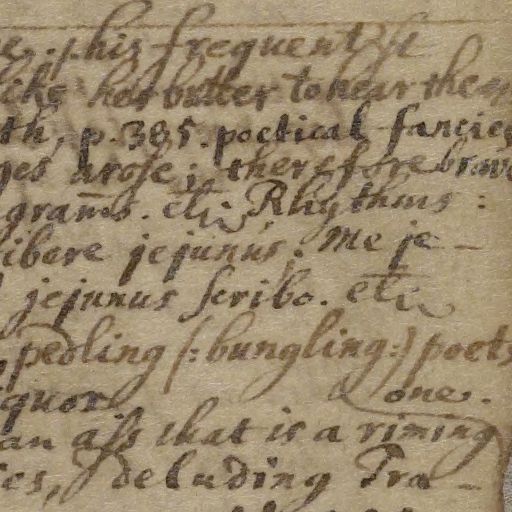 e. p. his frequent
her butter to hear the
th, p. 385. poetical fancies
ges arose; therefore brave
grams. etc. Rhythms:
ibere jejunus. Me je-
jejunus scribo. etc
pedling (: bungling:) poets
quor one.
an ass that is a riming
ies, deluding Tra-